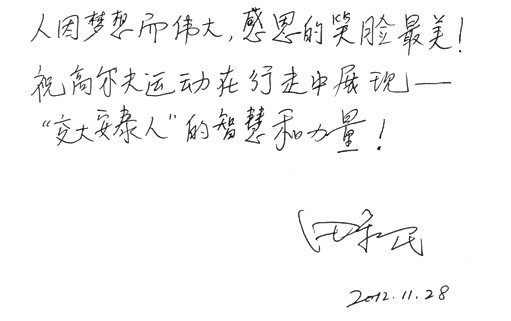 人因梦想而伟大,感恩的笑脸最美!
祝高尔夫运动在行走中展现——
“交大安泰人”的智慧和力量!
2012.11.28